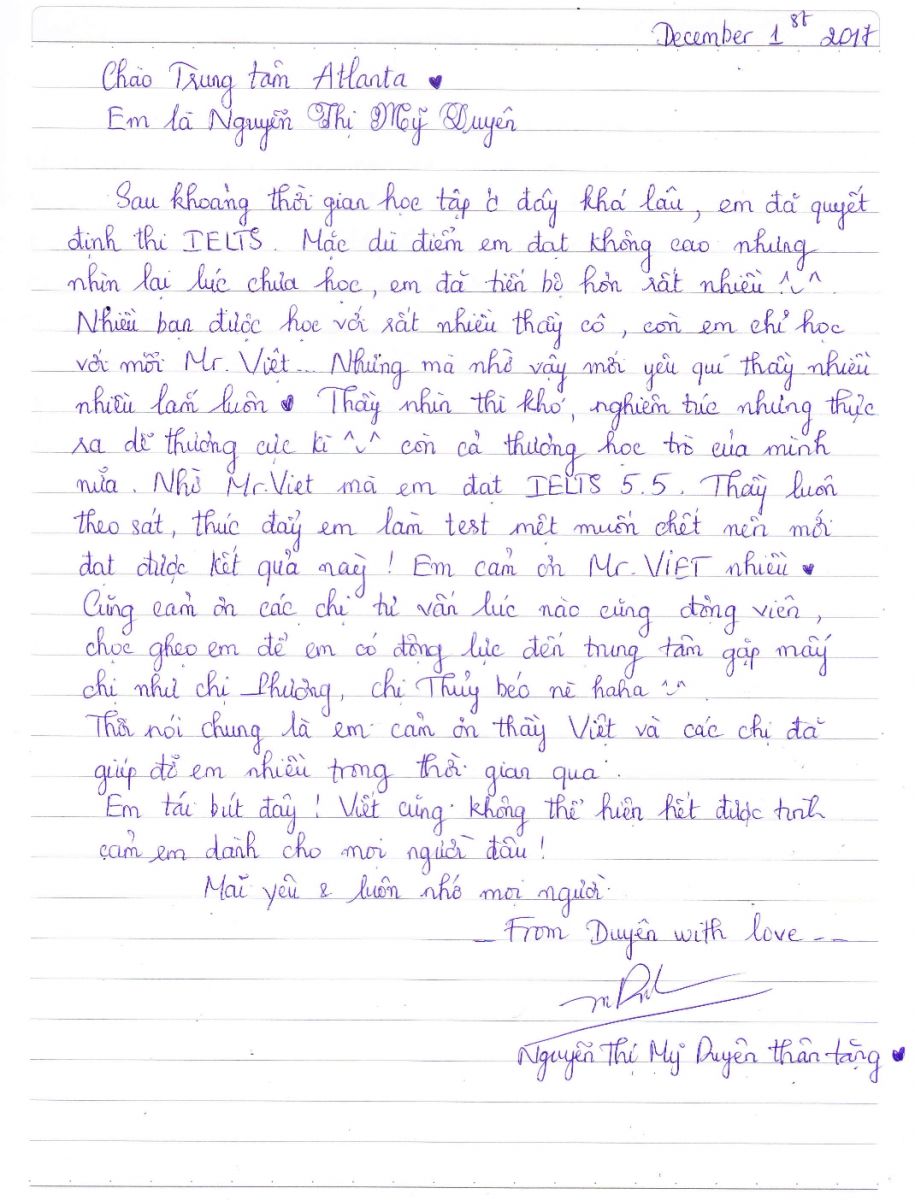 December 1st 2017
Chào Trung tâm Atlanta ♥
Em là Nguyễn Thị Mỹ Duyên
Sau khoảng thời gian học tập ở đây khá lâu, em đã quyết
định thi IELTS. Mặc dù điểm em đạt không cao nhưng
nhìn lại lúc chưa học, em đã tiến bộ hơn rất nhiều ^_^.
Nhiều bạn được học với rất nhiều thầy cô, còn em chỉ học
với mỗi Mr. Việt... Nhưng mà nhờ vậy mới yêu quí thầy nhiều
nhiều lắm luôn ♥ Thầy nhìn thì khó, nghiêm túc nhưng thực
ra dễ thương cực kì ^_^ còn cả thương học trò của mình
nữa. Nhờ Mr. Viet mà em đạt IELTS 5.5. Thầy luôn
theo sát, thúc đẩy em làm test mệt muốn chết nên mới
đạt được kết quả này! Em cảm ơn Mr. VIET nhiều ♥
Cũng cảm ơn các chị tư vấn lúc nào cũng động viên,
chọc ghẹo em để em có động lực đến trung tâm gặp mấy
chị như chị Phương, chị Thủy béo nè haha ^_^
Thôi nói chung là em cảm ơn thầy Việt và các chị đã
giúp đỡ em nhiều trong thời gian qua.
Em tái bút đây! Viết cũng không thể hiện hết được tình
cảm em dành cho mọi người đâu!
Mãi yêu & luôn nhớ mọi người.
_ From Duyên with love _ _
Nguyễn Thị Mỹ Duyên thân tặng ♥